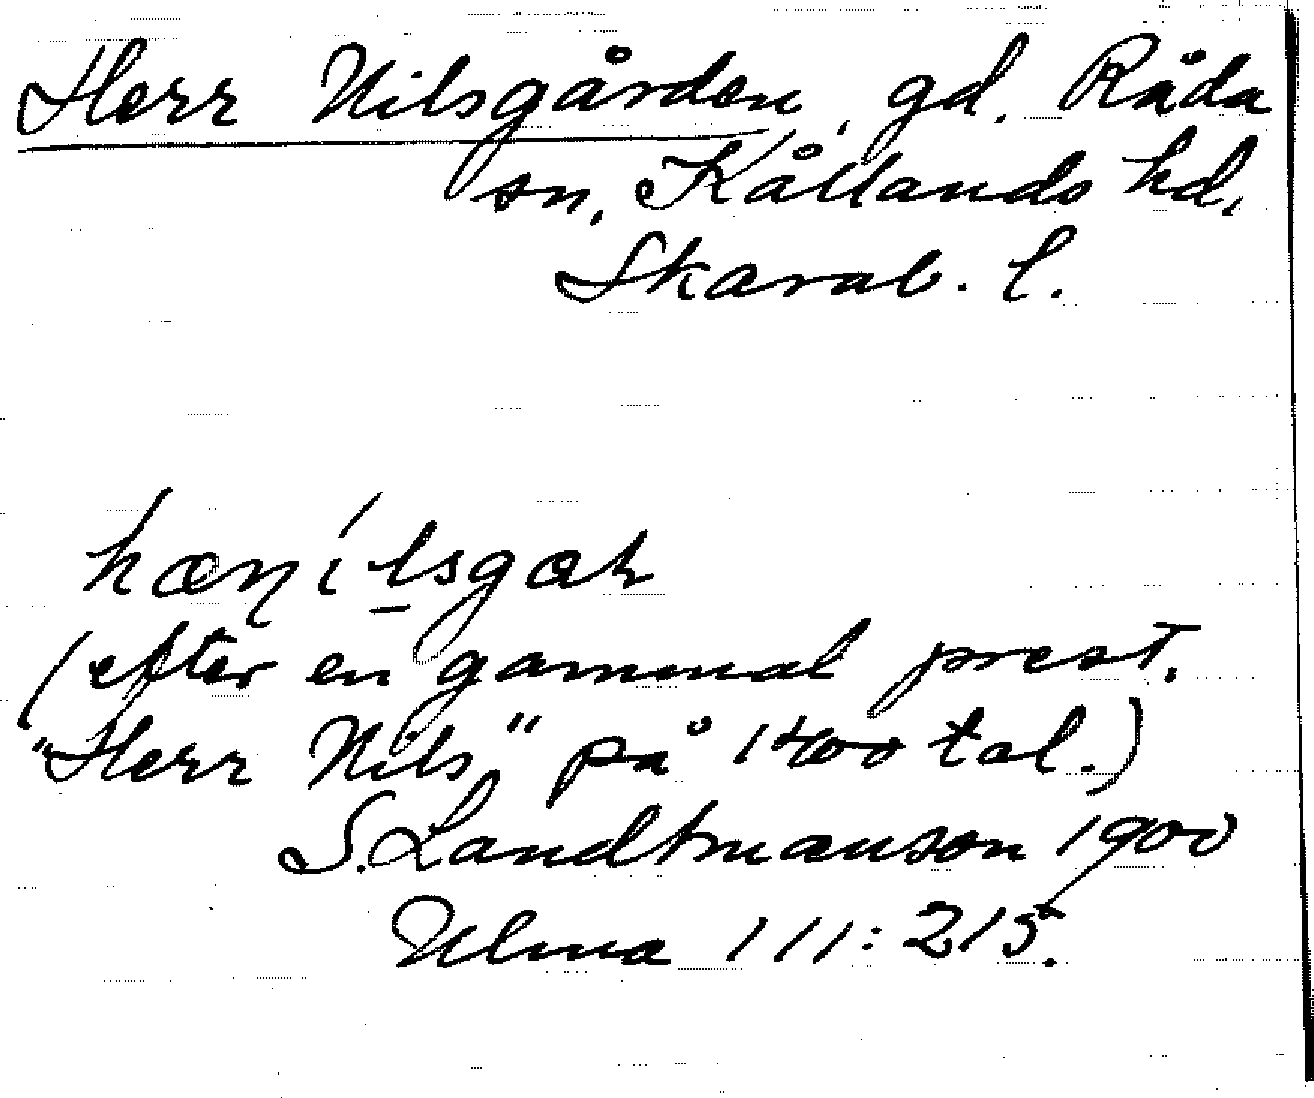 Herr Nilsgården, gd. Råda
sn, Kållands hd,
Skarab. l.
hæŋíl̲sgaṙ
(efter en gammal prest.
"Herr Nils" på 1400 tal.)
S. Landtmanson 1900
Ulma 111:215.